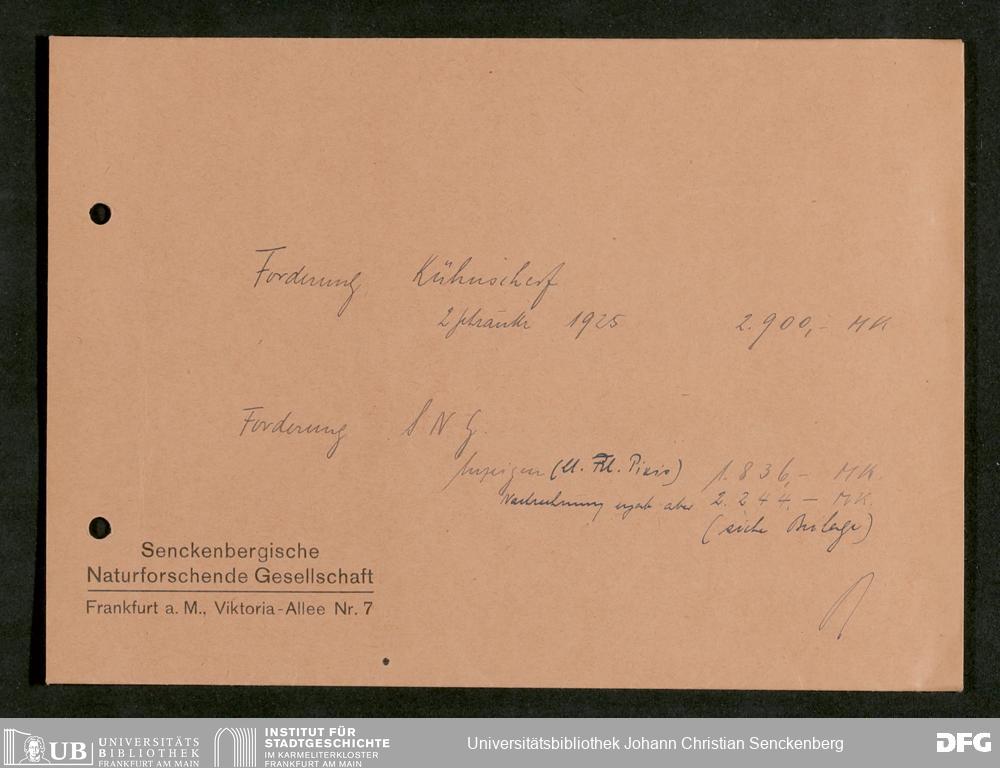 Forderung Kühnscherf
2 Schränke 1925 2.900,- MK
Forderung S N G.
Anzeigen (lt. Frl. Pixis) 1.836,- MK.
Nachrechnung ergab aber 2.244,- MK.
(siehe Beilage)
Senckenbergische
Naturforschende Gesellschaft
Frankfurt a. M., Viktoria-Allee Nr. 7
UB UNIVERSITÄTS
BIBLIOTHEK
FRANKFURT AM MAIN
INSTITUT FÜR
STADTGESCHICHTE
IM KARMELITERKLOSTER
FRANKFURT AM MAIN
Universitätsbibliothek Johann Christian Senckenberg
DFG